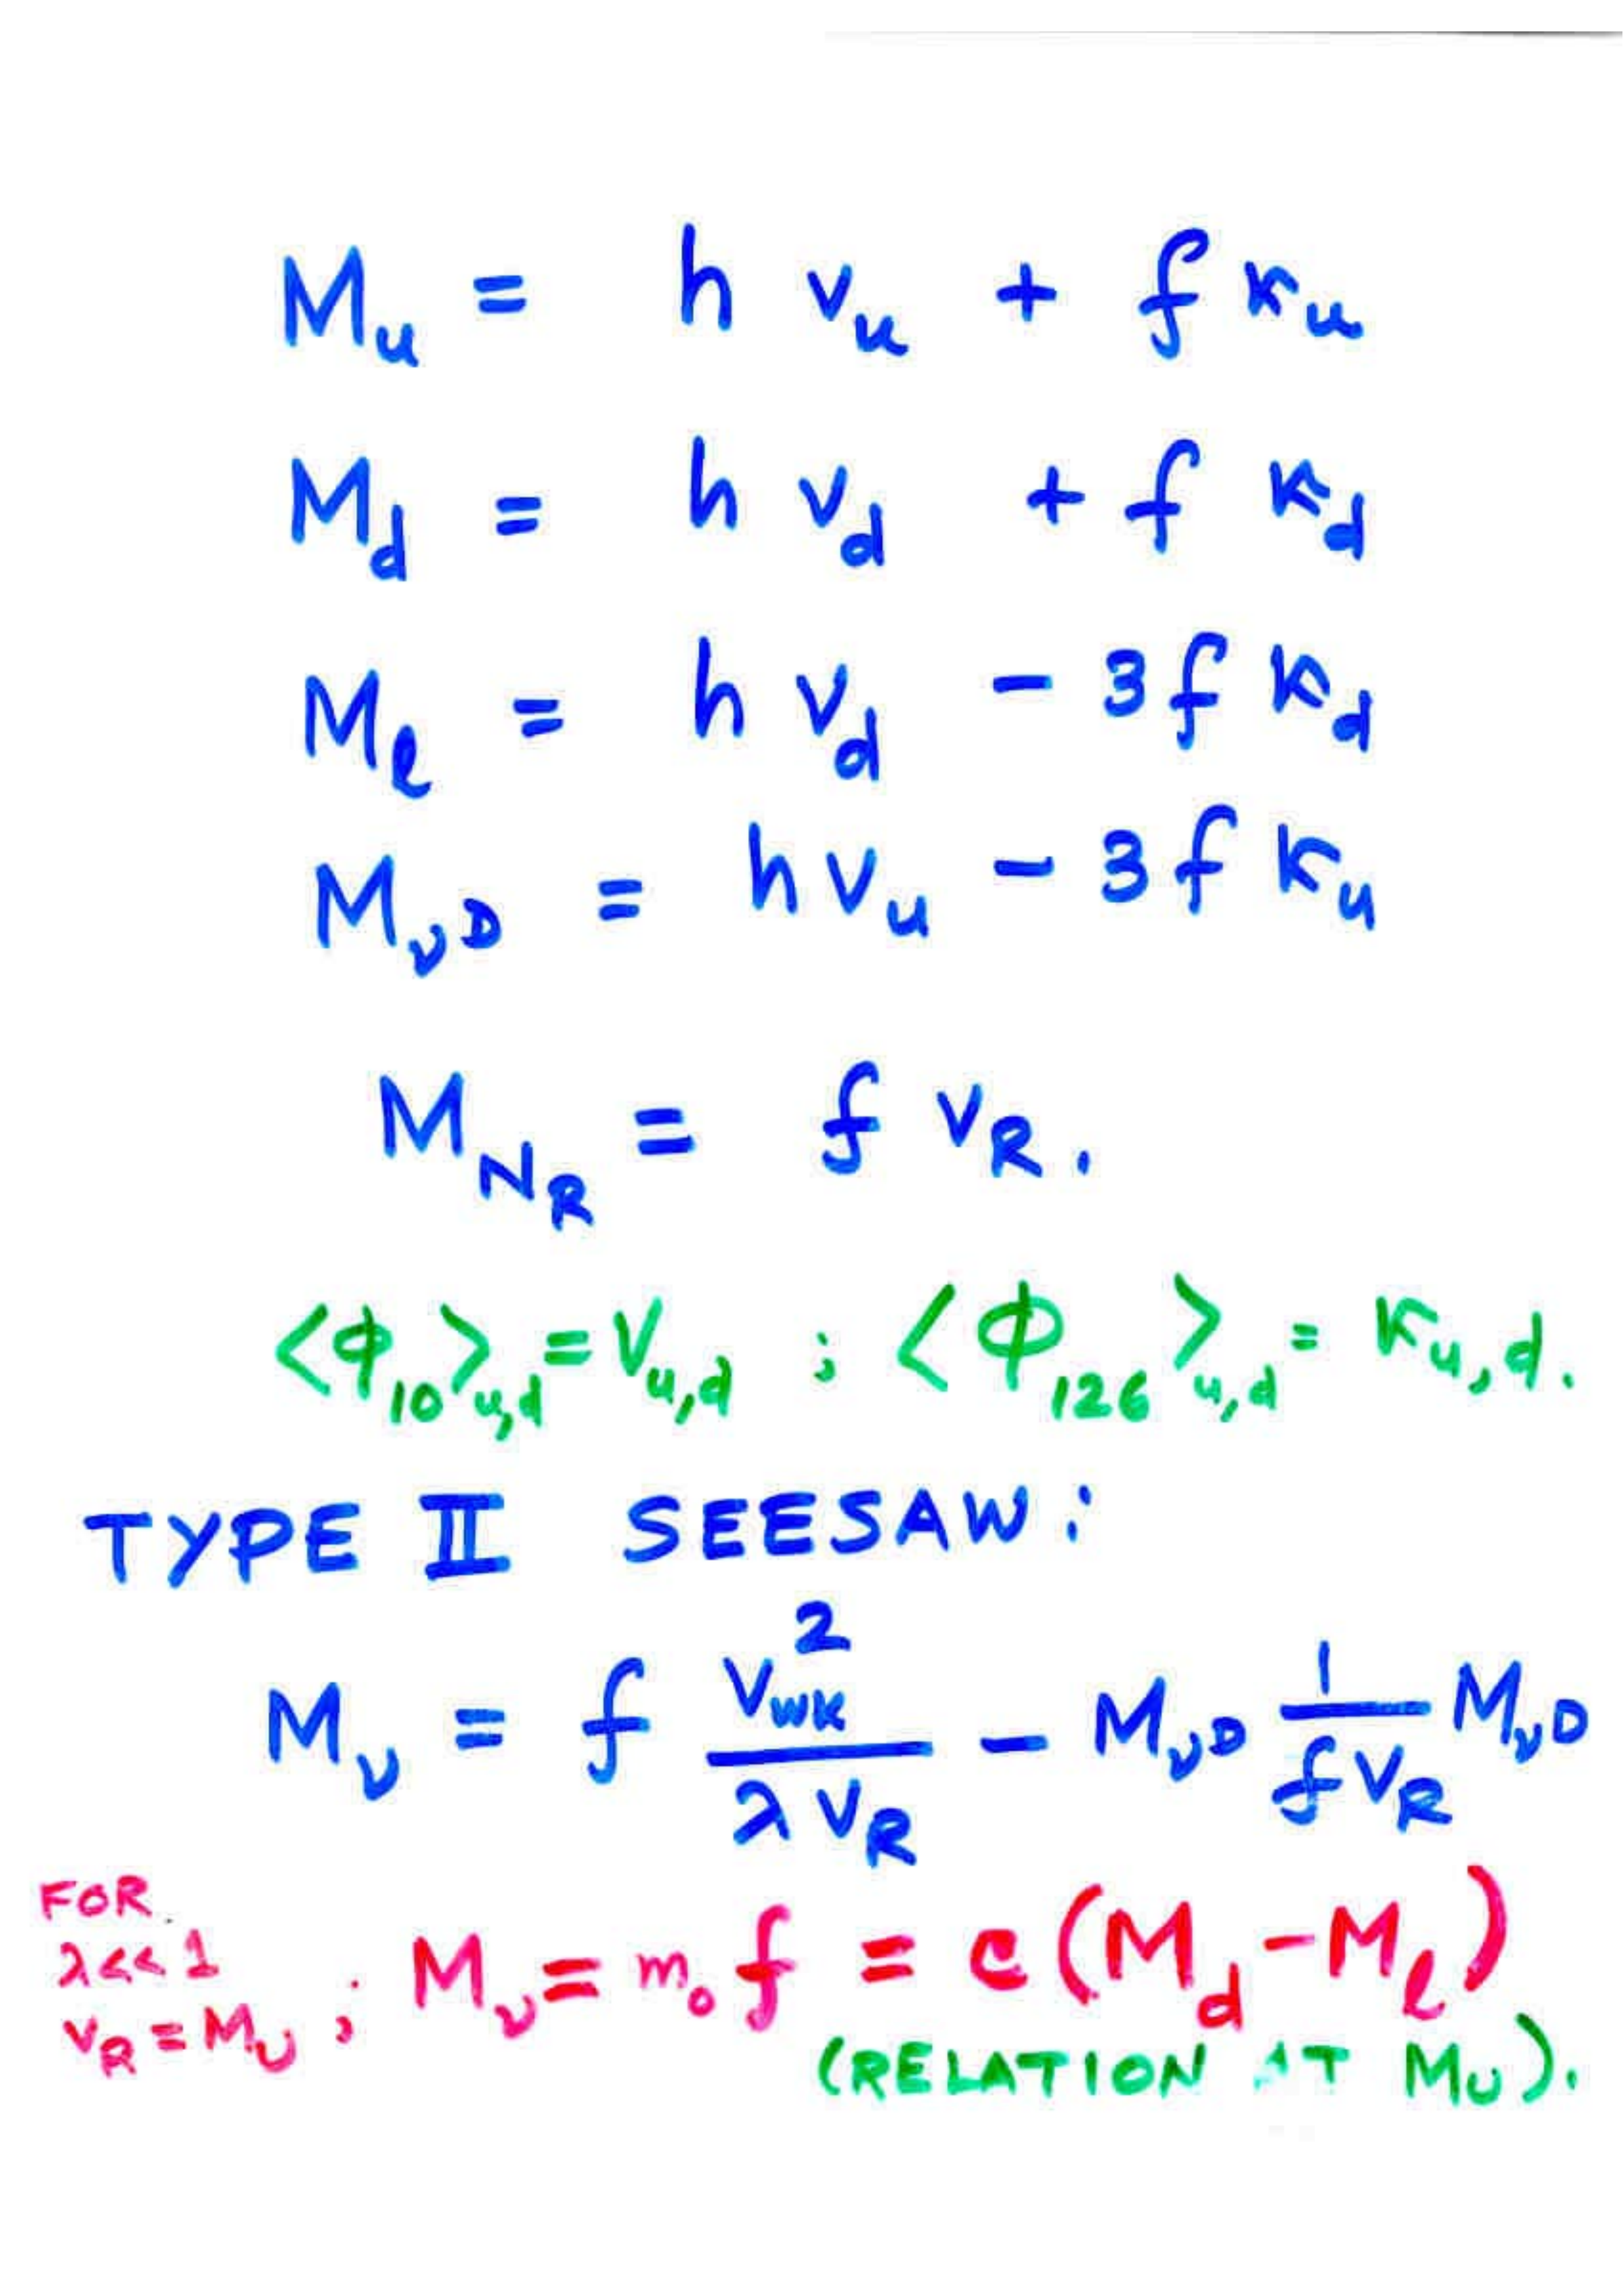 M_u = h v_u + f κ_u
M_d = h v_d + f κ_d
M_ℓ = h v_d - 3 f κ_d
M_νD = h v_u - 3 f κ_u
M_N_R = f v_R.
<φ_10>_u,d = V_u,d ; <Φ_126>_u,d = κ_u,d.
TYPE II SEESAW:
M_ν = f v_wk^2 / λ v_R - M_νD 1 / f v_R M_νD
FOR
λ<<1
v_R = M_U ; M_ν = m_0 f = c (M_d - M_ℓ)
(RELATION AT M_U).